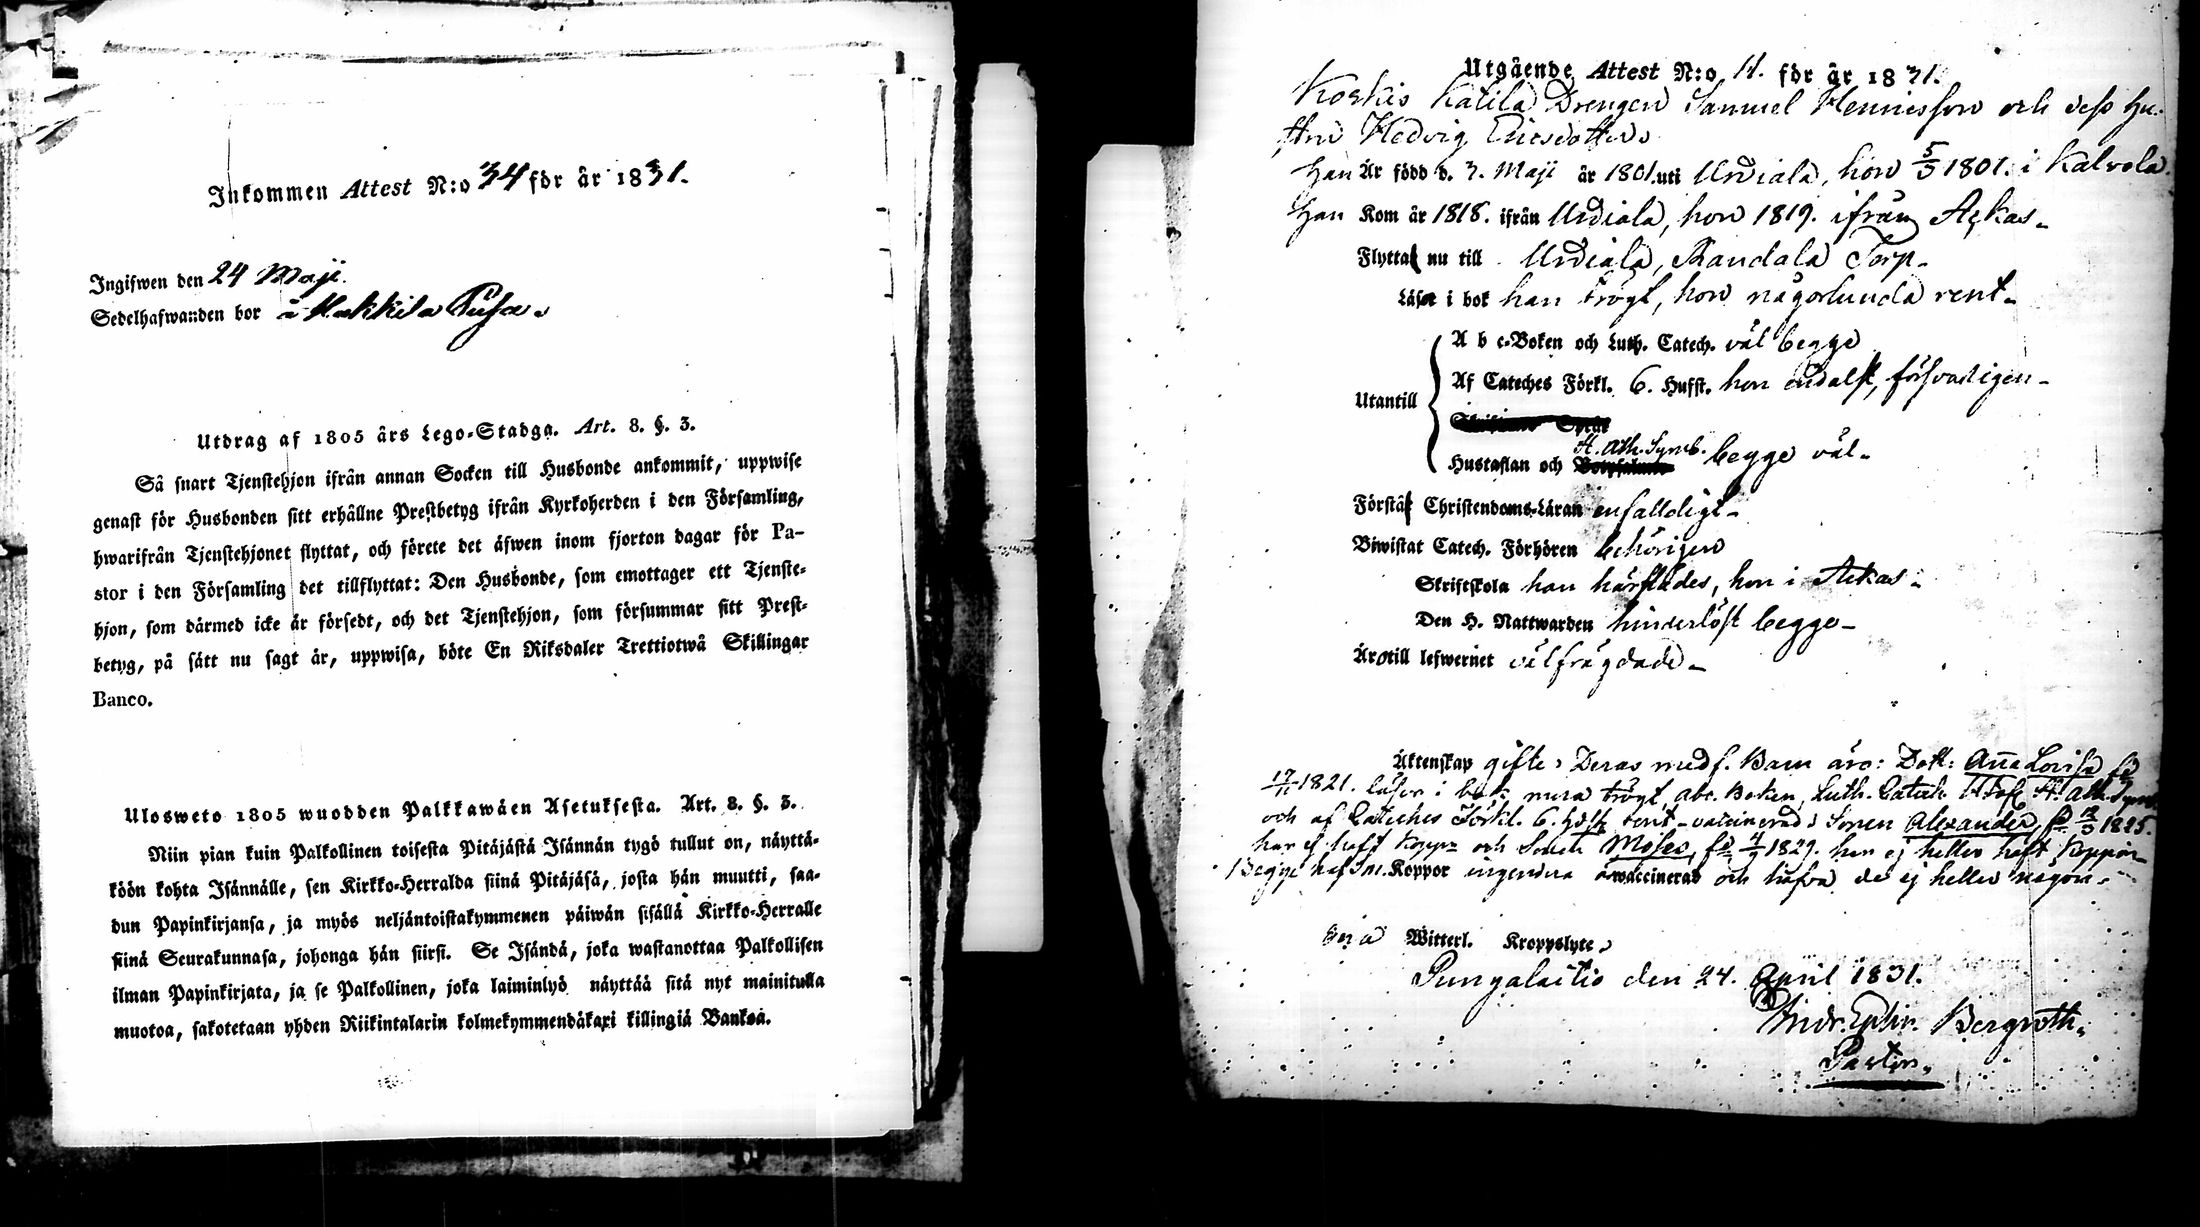 Inkommen Attest N:o 34 för år 1831.
Ingifwen den 24 Maji.
Sedelhafwanden bor å Makkila Pusa.
Utdrag af 1805 års Lego-Stadga. Art. 8. §. 3.
Så snart Tjenstehjon ifrån annan Socken till Husbonde ankommit, uppwise
genast för Husbonden sitt erhållne Prestbetyg ifrån Kyrkoherden i den Församling,
hwarifrån Tjenstehjonet flyttat, och förete det äfwen inom fjorton dagar för Pa-
stor i den Församling det tillflyttat: Den Husbonde, som emottager ett Tjenste-
hjon, som därmed icke är försedt, och det Tjenstehjon, som försummar sitt Prest-
betyg, på sätt nu sagt är, uppwisa, böte En Riksdaler Trettiotwå Skillingar
Banco.
Ulosweto 1805 wuodden Palkkawäen Asetuksesta. Art. 8. §. 3.
Niin pian kuin Palkollinen toisesta Pitäjästä Isännän tygö tullut on, näyttä-
köön kohta Isännälle, sen Kirkko-Herralda siinä Pitäjäsä, josta hän muutti, saa-
dun Papinkirjansa, ja myös neljäntoistakymmenen päiwän sisällä Kirkko-Herralle
siinä Seurakunnasa, johonga hän siirsi. Se Isändä, joka wastanottaa Palkollisen
ilman Papinkirjata, ja se Palkollinen, joka laiminlyö näyttää sitä nyt mainitulla
muotoa, sakotetaan yhden Riikintalarin kolmekymmendäkaxi killingiä Bankoa.
Utgående Attest N:o 11. för år 1831.
Koskis Katila Drengen Samuel Henricsson och dess hu-
stru Hedvig Ericsdotter
Han Är född d. 3. Maji år 1801. uti Urdiala, hon 5/3 1801. i Kalvola.
Han Kom år 1818. ifrån Urdiala, hon 1819. ifrån Ackas.
Flytta nu till Urdiala, Torp.
Läser i bok han trögt, hon någorlunda rent.
A b c-Boken och Luth. Catech. väl begge
Utantill Af Cateches Förkl. 6. Hufst. hon endast, försvarligen
H. Ath. Symb.
Hustaflan och begge väl.
Förstå Christendoms-Läran enfalldigt
Biwistat Catech. Förhören behörigen
Skriftskola han härstädes, hon i Ackas.
Den H. Nattwarden hinderlöst begge
Äro till lefwernet välfrägdade
Äktenskap gifte. Deras medf. Barn äro: Dott: Anna Lovisa fd
17/11 1821. läser i bok mera trögt, abc. Boken, Luth. Catech. H. Ath. Symb.
och af Cateches Förkl. 6. Hufst. vaccinerad: Sonen Alexander, fd 12/3 1825.
har ej haft Koppor och Moses, fd 4/9 1829. har ej heller haft Koppor
Begge Koppor waccinerad och de ej heller någon
Witterl. Kroppslyte
Pungalaitio den 24. April 1831.
Andr. Ephr. Bergroth.
Pastor.